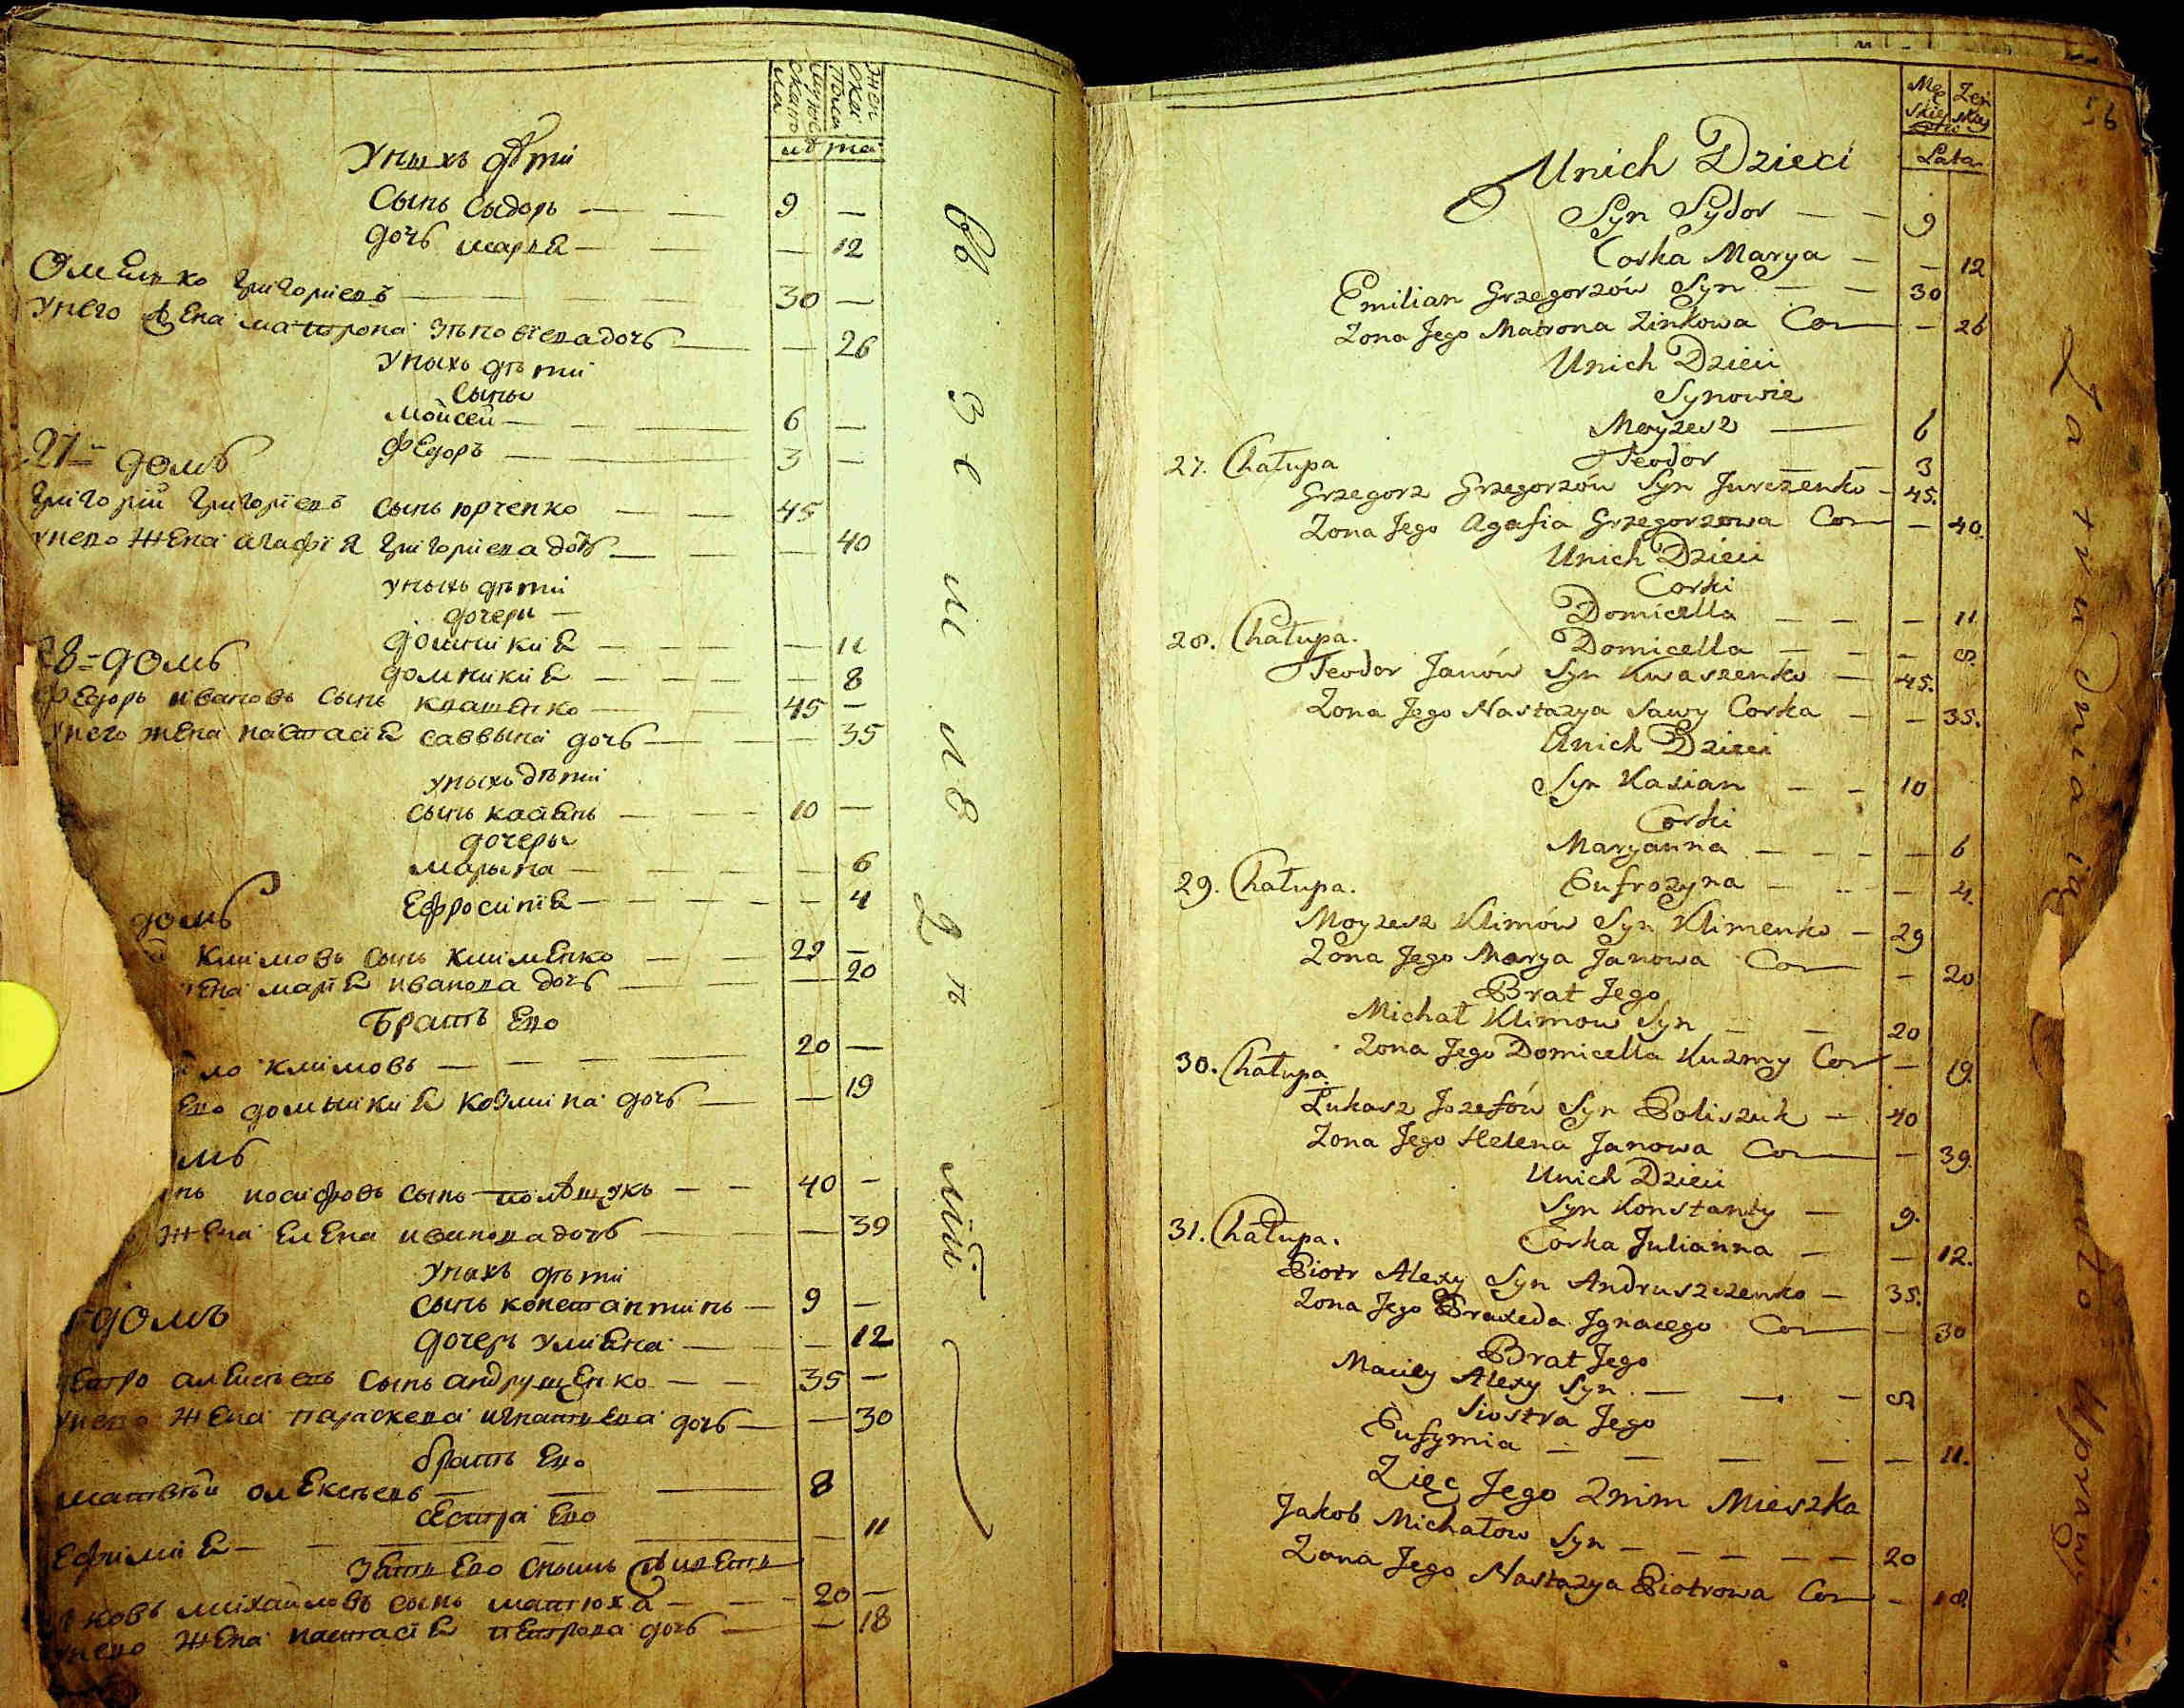 мужескаго пола
женска пола
лѣта
У них дѣти
Сынъ Сыдоръ — — 9 —
дочь мария — — — 12
Омелко григориевъ — — 30 —
У него жена матрона зѣновиева дочь — — 26
У ныхъ дѣти
Сыны
Мойсей — — 6 —
Федоръ — — 3 —
27 домъ
Григорий Григориевъ сынъ юрченко — — 45
У него жена агафия Григориева дочь — — 40
У ныхъ дѣти
дочери —
домникия — — — 11
домникия — — — 8
28 = домъ
Федоръ ивановъ сынъ квашенко — 45 —
У него жена настасия саввына дочь — — 35
У ныхъ дѣти
Сынъ касиянъ — — 10 —
дочеры
Марына — — — 6
Ефросиния — — — 4
домъ
Климовъ сынъ клименко — — 29 —
жена мария иванова дочь — — 20
Братъ его
ло климовъ — — 20 —
его домникия козмина дочь — — 19
мъ
иосифовъ сынъ полѣщукъ — — 40 —
жена елена иванова дочь — — 39
У нихъ дѣти
домъ
Сынъ константинъ — 9 —
дочеръ улияна — — 12
Петро алексѣевъ сынъ андрущенко — — 35 —
У него жена параскева игнатьева дочь — — 30
братъ его
Матвѣй олексѣевъ — — 8
сестра его
Ефимия — — — 11
Зять его с нымъ живетъ
Яковъ михайловъ сынъ матюха — — 20 —
У него жена настасия петрова дочь — — 18
56
Męskiey Żeńskiey
Płci
Lata
Unich Dzieci
Syn Sydor — — 9
Corka Marya — — 12
Emilian Grzegorzów Syn — — 30
Zona Jego Matrona Zinkowa Cor — — 26
Unich Dzieci
Synowie
Moyzesz — 6
Teodor — — 3
27. Chałupa
Grzegorz Grzegorzów Syn Jurczenko — 45.
Zona Jego Agafia Grzegorzowa Cor — — 40.
Unich Dzieci
Corki
Domicella — — — 11.
28. Chałupa.
Domicella — — — 8.
Teodor Janów Syn Kwaszenko — 45.
Zona Jego Nastazya Sawy Corka — — 35.
Unich Dzieci
Syn Kasian — — 10
Corki
Maryanna — — — — 6
29. Chałupa.
Eufrozyna — — — 4.
Moyzesz Klimów Syn Klimenko — 29
Zona Jego Marya Janowa Cor — — 20
Brat Jego
Michał Klimow Syn — — 20
Zona Jego Domicella Kuzmy Cor — 19.
30. Chałupa.
Łukasz Jozefów Syn Poliszuk — 40
Zona Jego Helena Janowa Cor — — 39.
Unich Dzieci
Syn Konstanty — 9.
31. Chałupa.
Corka Julianna — — 12.
Piotr Alexy Syn Andruszczenko — 35.
Zona Jego Praxeda Jgnacego Cor — — 30
Brat Jego
Maciey Alexy Syn — — — 8
Siostra Jego
Eufymia — — — — — 11.
Zięc Jego Znim Mieszka
Jakob Michałow Syn — — — — — 20
Zona Jego Nastazya Piotrowa Cor — — 18.